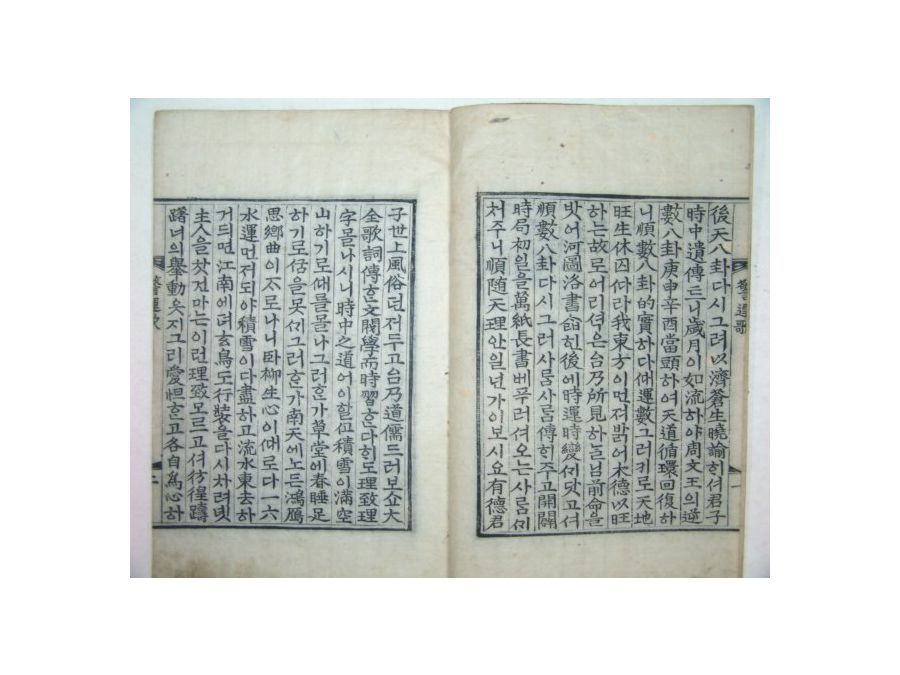 後天八卦다시그려以濟蒼生曉諭히셔君子
時中遺傳트니歲月이如流하야周文王의逆
數八卦庚申辛酉當頭하여天道循環回復하
니順數八卦的實하다運數그러키로天地
旺生休囚따라我東方이먼져밝어木德以旺
하는故로어리셕은台乃所見하느님前命을
밧어河圖洛書合헌後에時運時變닥고셔
順數八卦다시그러사룸사룸傳히주고開闢
時局初일을萬紙長書베푸러셔오는사룸
처주니順隨天理안일넌가이보시요有德君
警運歌
一
子世上風俗던져두고台乃道儒드러보쇼大
全歌詞傳한文閣學而時習한다히도理致理
字몰나시니時中之道어이할고積雪이滿空
山하기로를몰나그러한가草堂에春睡足
하기로을못그러한가南天에노든鴻鴈
思鄕曲이졀로나니臥柳生心이로다一六
水運먼저되야積雪이다盡하고流水東去하
거듸면江南에玄鳥도行裝을다시차려
主人을찻지마는이런理致모르고셔彷徨躊
躇녀의擧動읏지그리한고各自爲心하
警運歌
二